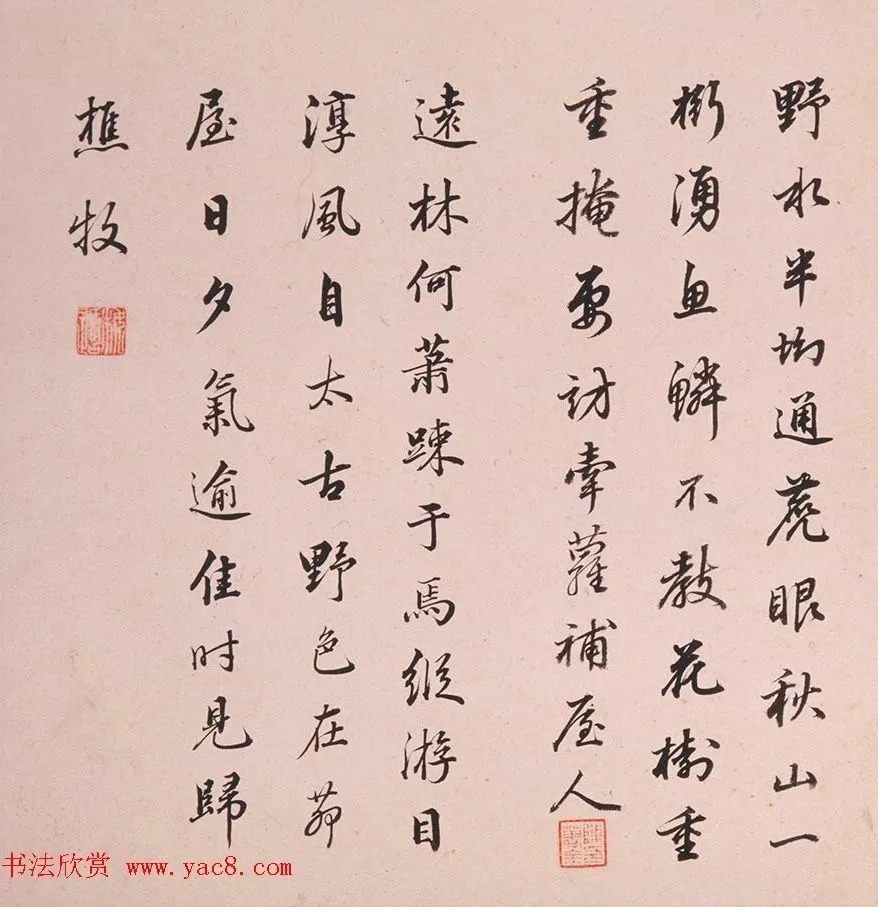 野水半坳通麂眼秋山一
桁湧魚鱗不教花樹重
重掩要訪牽蘿補屋人
遠林何蕭踈于焉縱游目
淳風自太古野色在茆
屋日夕氣逾佳时見歸
樵牧
书法欣赏 www.yac8.com